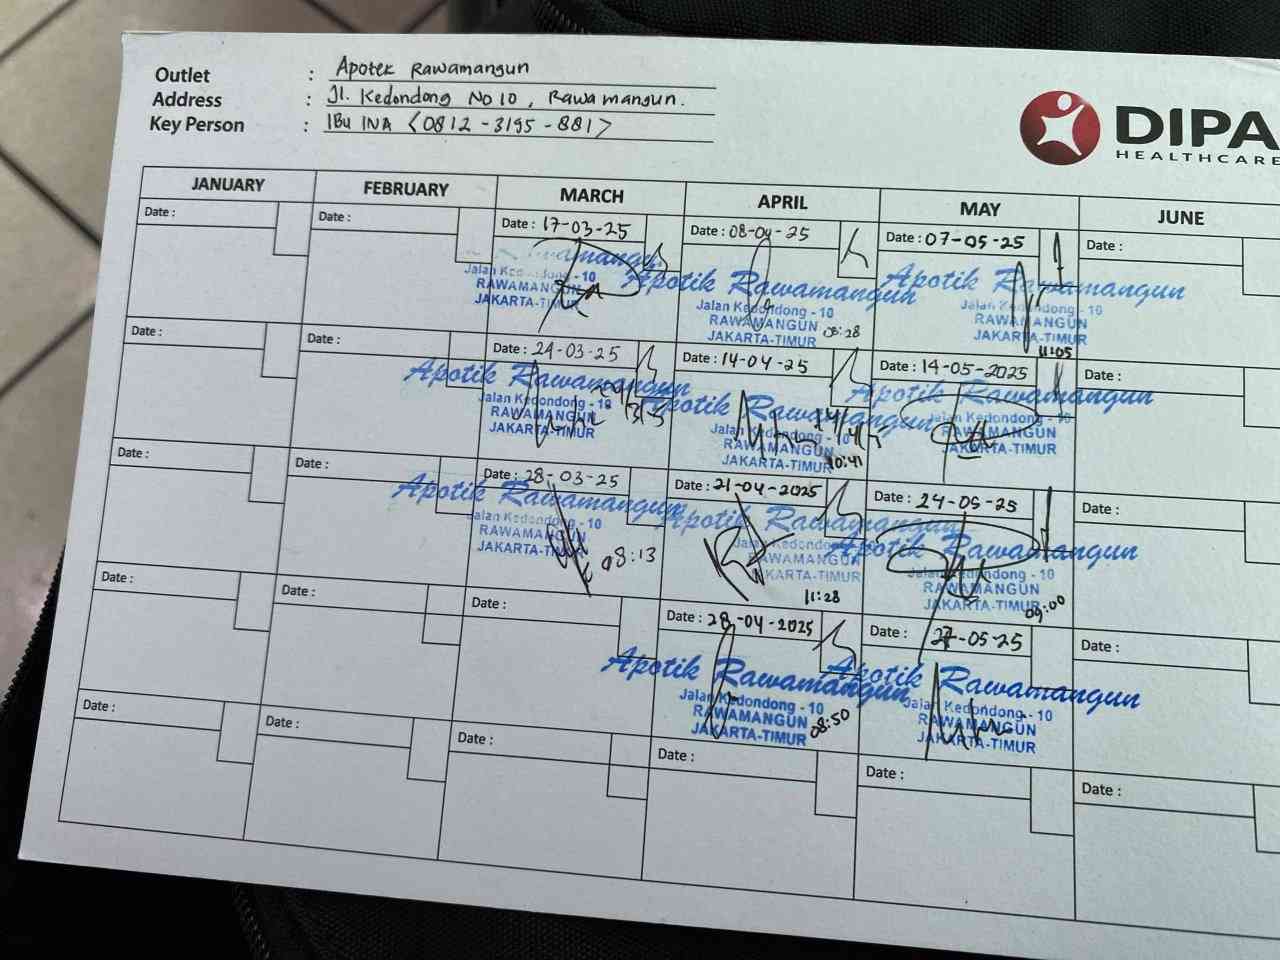 Outlet : Apotek Rawamangun
Address : Jl. Kedondong No 10, Rawamangun.
Key Person : IBu INA (0812-3195-881)
DIPA
HEALTHCARE
JANUARY FEBRUARY MARCH APRIL MAY JUNE
Date : Date : Date : 17-03-25 Date : 08-04-25 Date : 07-05-25 Date :
Apotik Rawamangun Apotik Rawamangun
Jalan Kedondong - 10 Jalan Kedondong - 10 Jalan Kedondong - 10
RAWAMANGUN RAWAMANGUN RAWAMANGUN
JAKARTA-TIMUR JAKARTA-TIMUR JAKARTA-TIMUR
08:28 11:05
Date : Date : Date : 24-03-25 Date : 14-04-25 Date : 14-05-2025 Date :
Apotik Rawamangun Apotik Rawamangun Apotik Rawamangun
Jalan Kedondong - 10 Jalan Kedondong - 10 Jalan Kedondong - 10
RAWAMANGUN RAWAMANGUN RAWAMANGUN
JAKARTA-TIMUR JAKARTA-TIMUR JAKARTA-TIMUR
10:41
Date : Date : Date : 28-03-25 Date : 21-04-2025 Date : 24-05-25 Date :
Apotik Rawamangun Apotik Rawamangun Apotik Rawamangun
Jalan Kedondong - 10 Jalan Kedondong - 10 Jalan Kedondong - 10
RAWAMANGUN RAWAMANGUN RAWAMANGUN
JAKARTA-TIMUR JAKARTA-TIMUR JAKARTA-TIMUR
08:13 11:28 09:00
Date : Date : Date : Date : 28-04-2025 Date : 27-05-25 Date :
Apotik Rawamangun Apotik Rawamangun
Jalan Kedondong - 10 Jalan Kedondong - 10
RAWAMANGUN RAWAMANGUN
JAKARTA-TIMUR JAKARTA-TIMUR
08:50
Date : Date : Date : Date : Date : Date :